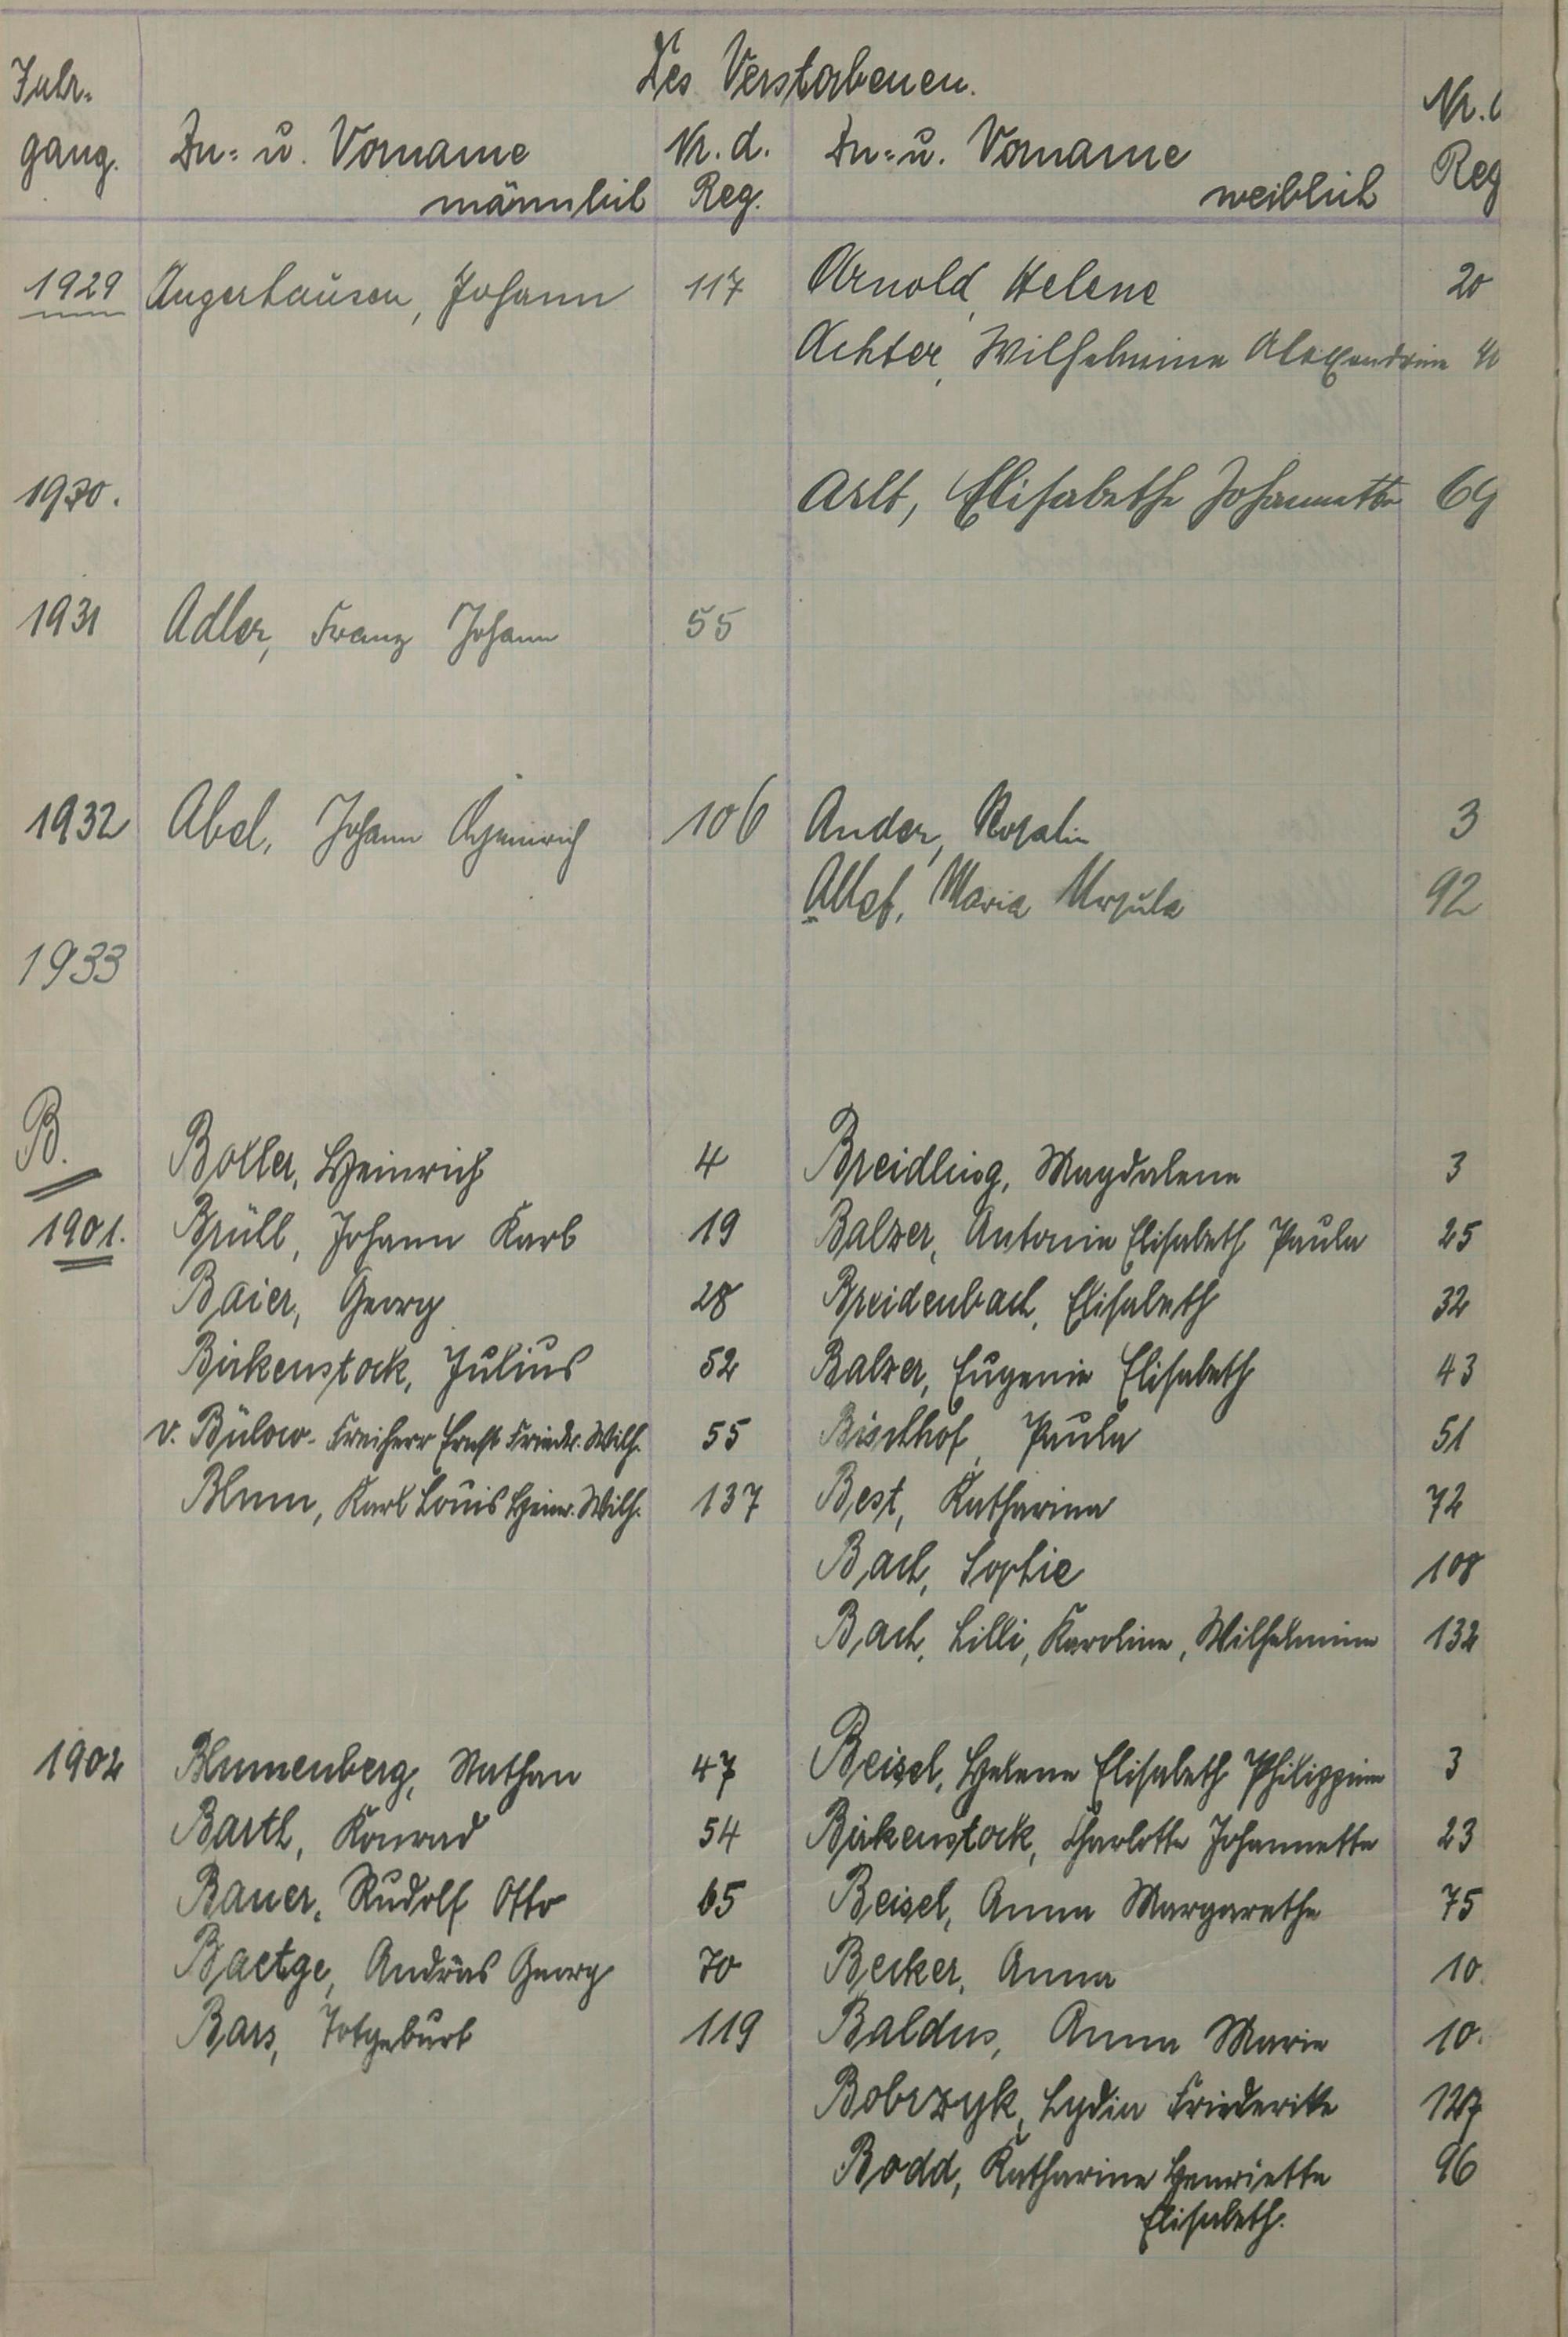 Des Verstorbenen.
Jahr-
gang. Zu- u. Vorname männlich Nr. d. Reg. Zu- u. Vorname weiblich Nr. Reg
1929 Angerhausen, Johann 117 Arnold, Helene 20
Achter, Wilhelmine Alexandrine
1930. Arlt, Elisabethe Johannette 69
1931 Adler, Franz Johann 55
1932 Abel, Johann Heinrich 106 Ander, Rosalin 3
Allef, Maria Ursula 92
1933
B.
Boller, Heinrich 4 Breidling, Magdalene 3
1901. Brüll, Johann Karl 19 Balzer, Antonie Elisabeth Paula 25
Baier, Georg 28 Breidenbach, Elisabeth 32
Birkenstock, Julius 52 Balzer, Eugenie Elisabeth 43
v. Bülow- Freiherr Ernst Friedr. Wilh. 55 Bischhof, Paula 51
Blum, Karl Louis Heinr. Wilh. 137 Best, Katharina 72
Bach, Sophie 108
Bach, Lilli, Karoline, Wilhelmine 132
1902 Blumenberg, Nathan 47 Beisel, Helene Elisabeth Philippine 3
Barth, Konrad 54 Birkenstock, Charlotte Johannette 23
Bauer, Rudolf Otto 65 Beisel, Anna Margarethe 75
Baetge, Andräs Georg 70 Becker, Anna 10
Bars, Totgeburt 119 Baldus, Anna Marie 10
Bobrzyk, Lydia Friederike 127
Bodd, Katharine Henriette 96
Elisabeth.